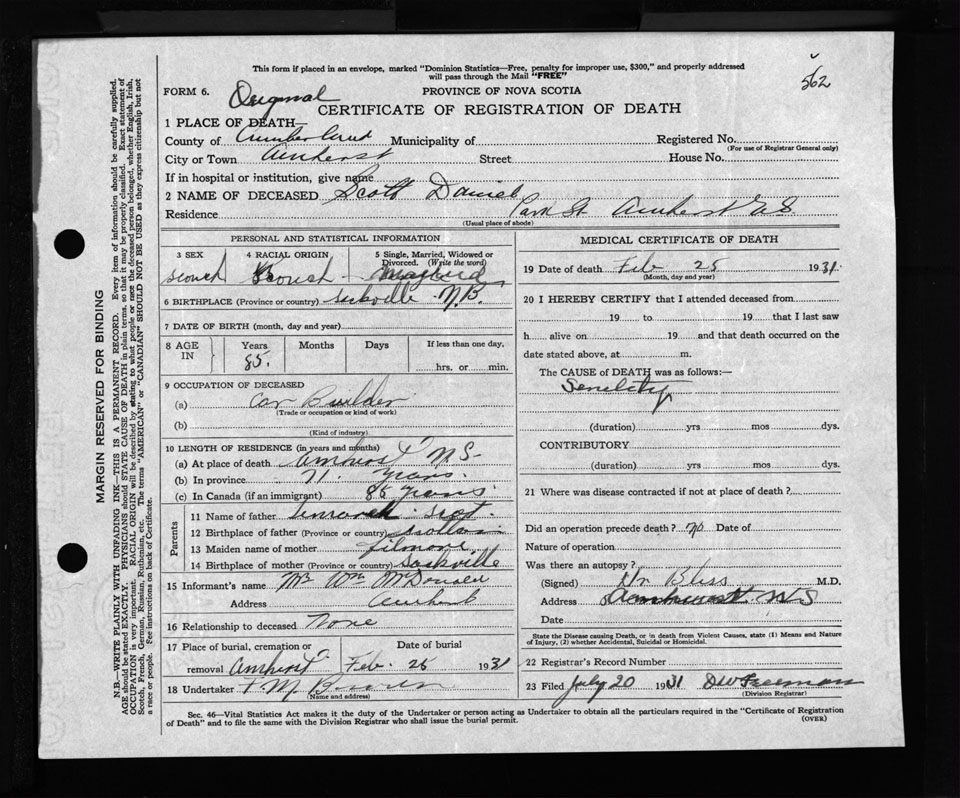 This form if placed in an envelope, marked "Dominion Statistics—Free, penalty for improper use, $300," and properly addressed
will pass through the Mail "FREE"
562
FORM 6. Original PROVINCE OF NOVA SCOTIA
CERTIFICATE OF REGISTRATION OF DEATH
1 PLACE OF DEATH—
County of Cumberland Municipality of Registered No.
(For use of Registrar General only)
City or Town Amherst Street House No.
If in hospital or institution, give name
2 NAME OF DECEASED Scott Daniel
Residence Park St. Amherst N.S.
(Usual place of abode)
PERSONAL AND STATISTICAL INFORMATION
3 SEX 4 RACIAL ORIGIN 5 Single, Married, Widowed or
Divorced. (Write the word)
6 BIRTHPLACE (Province or country) Sackville N.B.
7 DATE OF BIRTH (month, day and year)
8 AGE IN Years Months Days If less than one day,
85. hrs. or min.
9 OCCUPATION OF DECEASED
(a) Car Builder
(Trade or occupation or kind of work)
(b)
(Kind of industry)
10 LENGTH OF RESIDENCE (in years and months)
(a) At place of death Amherst N.S.
(b) In province 71. years.
(c) In Canada (if an immigrant) 85 years
Parents
11 Name of father Scot.
12 Birthplace of father (Province or country)
13 Maiden name of mother Filmore
14 Birthplace of mother (Province or country) Sackville
15 Informant's name Mr Wm McDonald
Address Amherst
16 Relationship to deceased None
17 Place of burial, cremation or Date of burial
removal Amherst Feb. 1931
18 Undertaker F. M. Brown
(Name and address)
MEDICAL CERTIFICATE OF DEATH
19 Date of death Feb 25 1931.
(Month, day and year)
20 I HEREBY CERTIFY that I attended deceased from
19 to 19 that I last saw
h alive on 19 and that death occurred on the
date stated above, at m.
The CAUSE of DEATH was as follows:—
Senility
(duration) yrs mos dys.
CONTRIBUTORY
(duration) yrs mos dys.
21 Where was disease contracted if not at place of death?
Did an operation precede death? No Date of
Nature of operation
Was there an autopsy?
(Signed) Dr Bliss M.D.
Address Amherst N S
Date
State the Disease causing Death, or in death from Violent Causes, state (1) Means and Nature
of Injury, (2) whether Accidental, Suicidal or Homicidal.
22 Registrar's Record Number
23 Filed July 20 1931 D W Freeman
(Division Registrar)
Sec. 46—Vital Statistics Act makes it the duty of the Undertaker or person acting as Undertaker to obtain all the particulars required in the "Certificate of Registration
of Death" and to file the same with the Division Registrar who shall issue the burial permit.
(OVER)
MARGIN RESERVED FOR BINDING
N.B.—WRITE PLAINLY WITH UNFADING INK—THIS IS A PERMANENT RECORD. Every item of information should be carefully supplied.
AGE should be stated EXACTLY. PHYSICIANS should STATE CAUSE OF DEATH in plain terms, so that it may be properly classified. Exact statement of
OCCUPATION is very important. RACIAL ORIGIN will be described by stating to what people or race the deceased person belonged, whether English, Irish,
Scotch, French, German, Russian, Ruthenian, etc. The terms "AMERICAN" or "CANADIAN" SHOULD NOT BE USED as they express citizenship but not
a race or people. See instructions on back of Certificate.